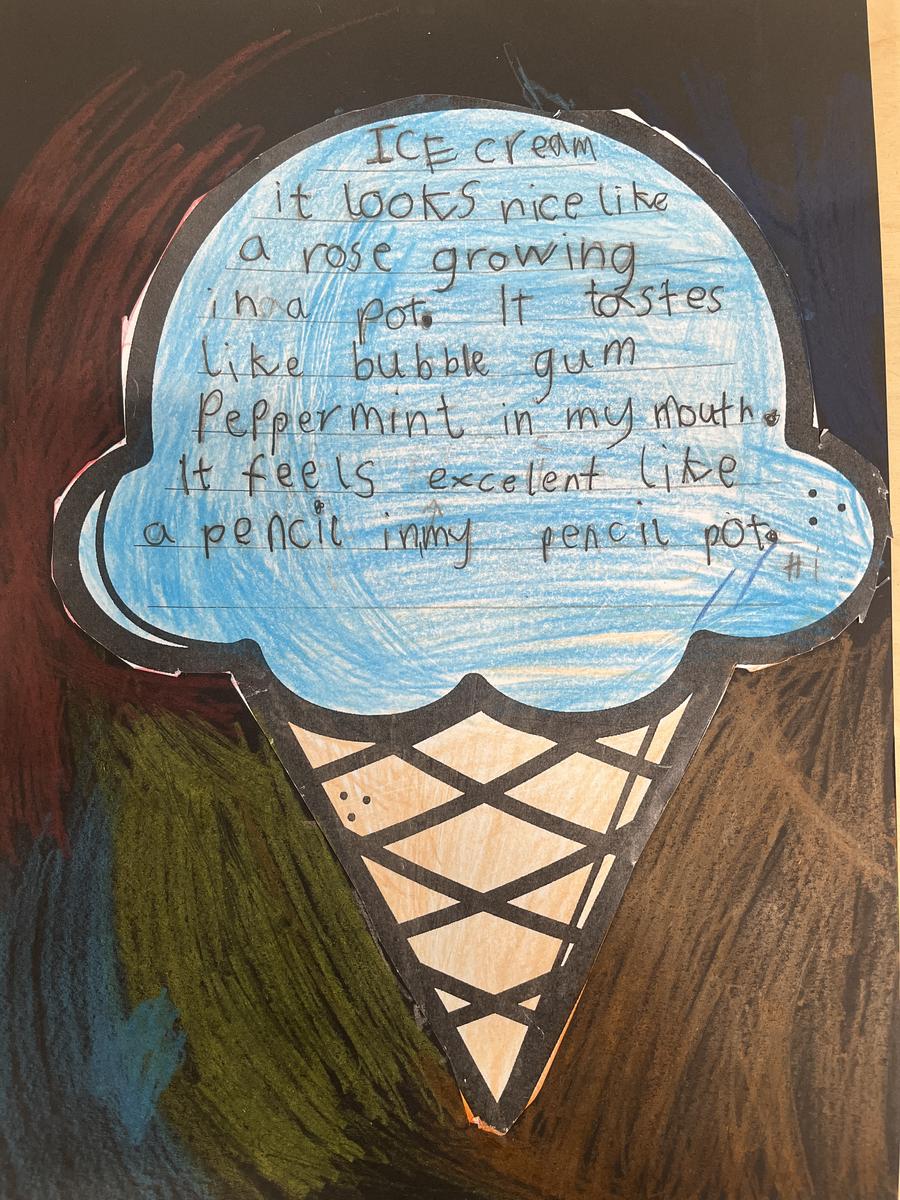 ICE cream
it looks nice like
a rose growing
in a pot. It tastes
like bubble gum
Peppermint in my mouth.
It feels excelent like
a pencil in my pencil pot.
#1